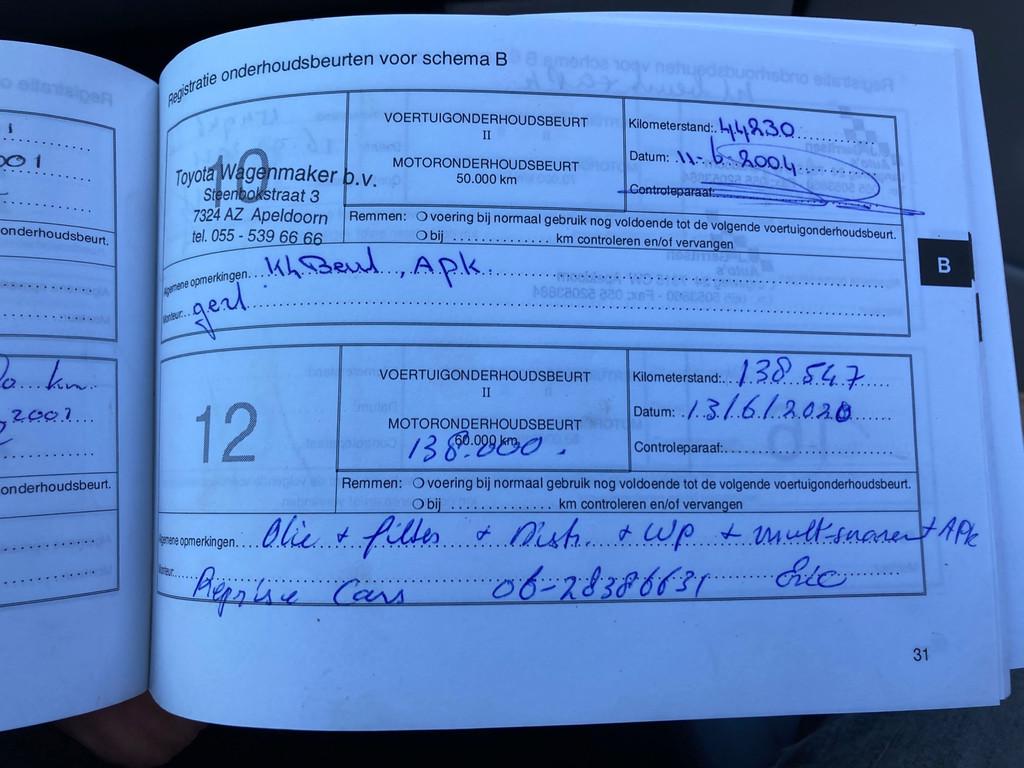 Registratie onderhoudsbeurten voor schema B
10
Toyota Wagenmaker b.v.
Steenbokstraat 3
7324 AZ Apeldoorn
tel. 055 - 539 66 66
VOERTUIGONDERHOUDSBEURT
II
MOTORONDERHOUDSBEURT
50.000 km
Kilometerstand: 44230
Datum: 11-6-2004
Controleparaaf:
Remmen: voering bij normaal gebruik nog voldoende tot de volgende voertuigonderhoudsbeurt.
bij km controleren en/of vervangen
Algemene opmerkingen. Kl. Beurt, Apk
Monteur: gert
B
12
VOERTUIGONDERHOUDSBEURT
II
MOTORONDERHOUDSBEURT
60.000 km
138.000.
Kilometerstand: 138 547
Datum: 13/6/2020
Controleparaaf:
Remmen: voering bij normaal gebruik nog voldoende tot de volgende voertuigonderhoudsbeurt.
bij km controleren en/of vervangen
Algemene opmerkingen. Olie + filter + Distr. + WP + multisnaren + APK
Monteur: Reprise Cars 06-28386631 Eric
31
onderhoudsbeurt.
km.
2001
onderhoudsbeurt.